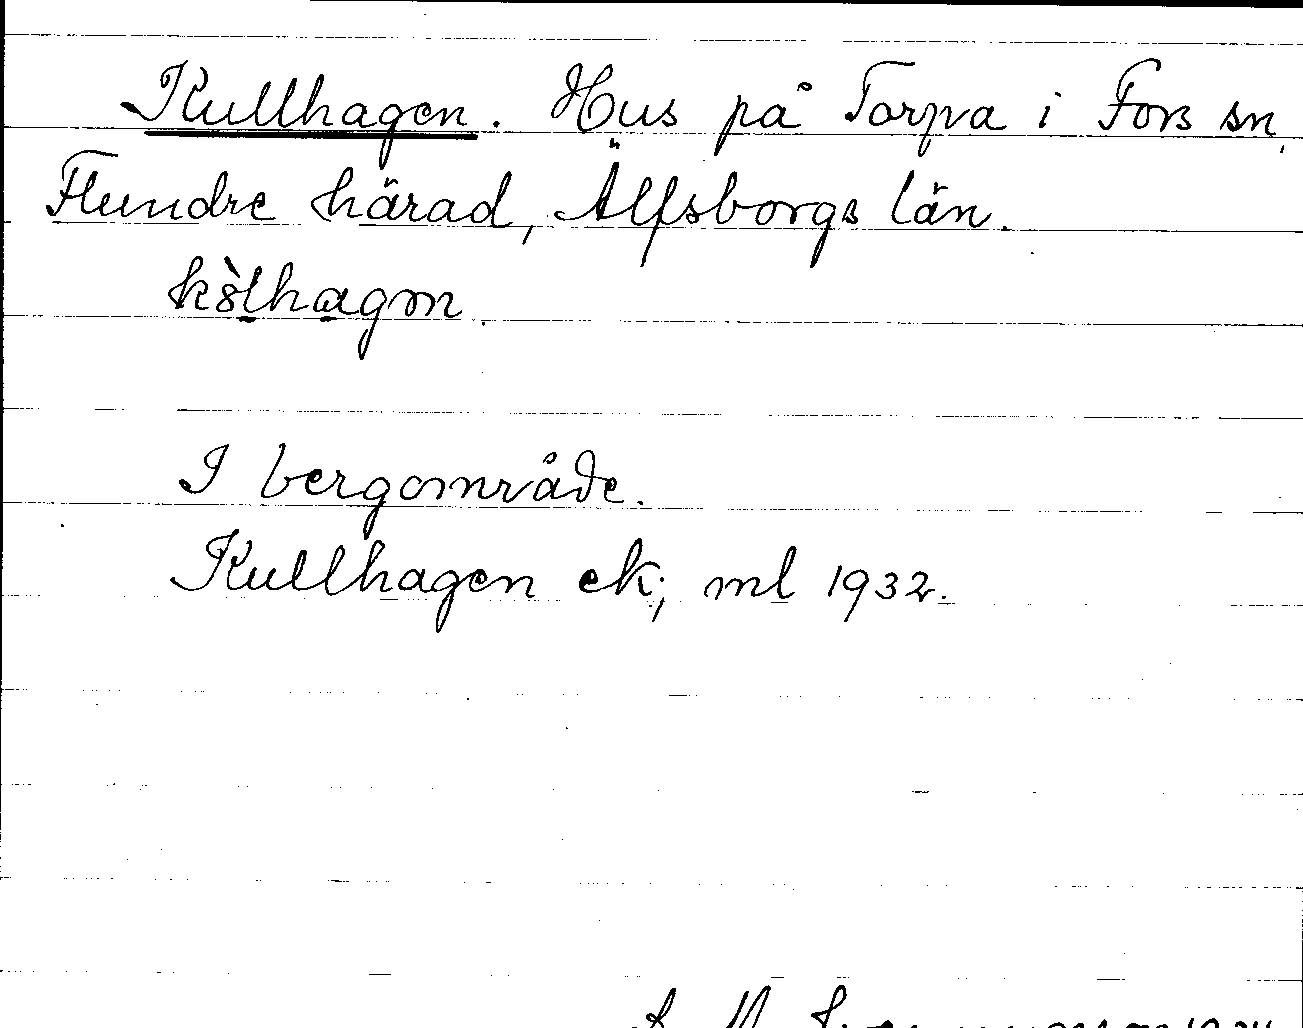 Kullhagen. Hus på Torpa i Fors sn,
Flundre härad, Älfsborgs län.
kòlhagm.
I bergområde.
Kullhagen ek; ml 1932.